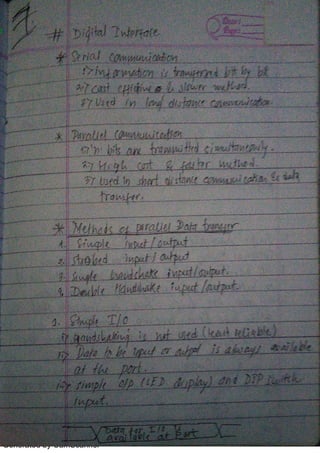 # Digital Interface
* Serial communication
1) information is transferred bit by bit
2) Cost effictive & slower method.
3) Used in long distance communication.
* Parallel Communication
1) 'n' bits are transmitted simultaneously.
2) High cost & faster method.
3) Used in short distance communication & data
transfer.
* Methods of parallel Data transfer
1. Simple input/output
2. strobed input/output
3. Single handshake input/output.
4. Double Handshake input/output.
1. Simple I/O
i) Handshaking is not used (least reliable)
ii) Data to be input or output is always available
at the port.
iii) Simple O/P (LED display) and DIP switch
input.
Data for I/O is
available at Port
Generated by CamScanner